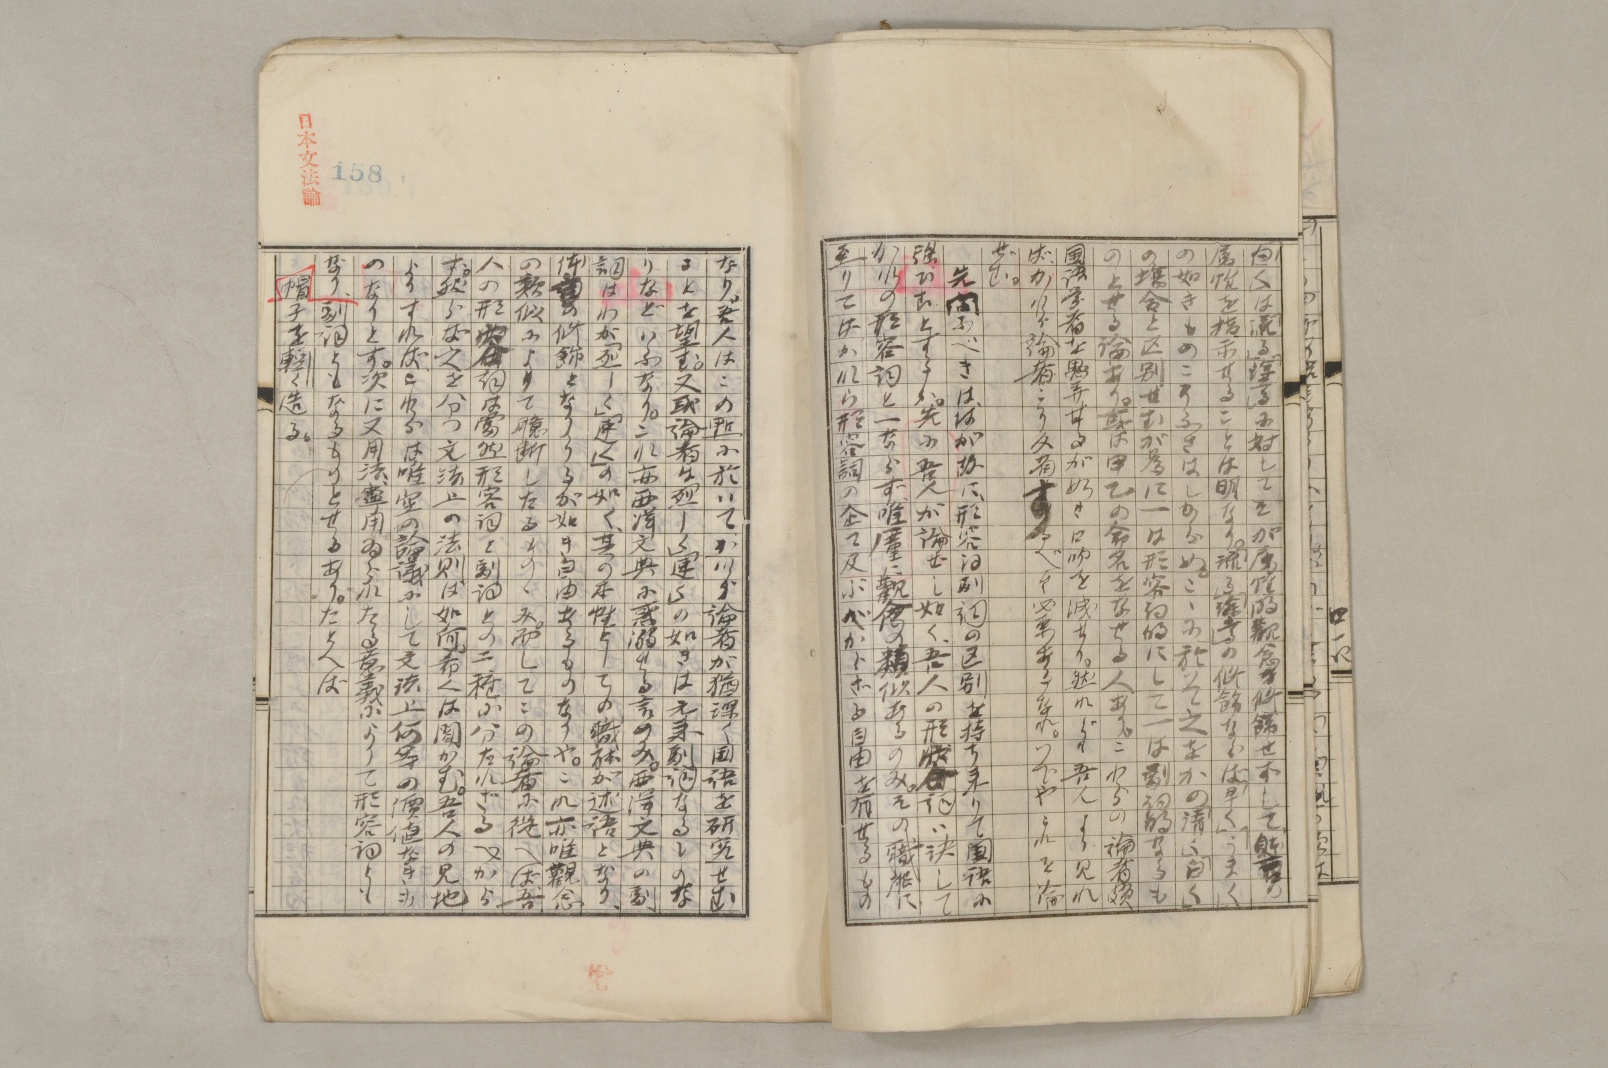 白くは「流るゝ」「淳る」に対してそが属性的観念を修飾せずして
属性を指示せることは明なり。「流る」「淳る」の修飾ならば「早く」「うまく」
の如きものこそふさはしからめ。こゝに於いて之をかの「清く」「白く」
の場合と区別せむが為に一は形容詞的にして一は副詞的なるも
のとせる論あり。或は甲乙の命名をなせる人あり。これらの論者頗
国語学者を愚弄せるが如き口吻を洩せり。然れども吾人より見れ
ばかゝる論者こそ又
ぜむ。
先問ふべきは何が故に、形容詞副詞の区別を持ち来りて国語に
強ひむとするか。先に吾人が論ぜし如く、吾人の形状詞は決して
かれの形容詞と一ならず、唯僅に観念の類似あるのみ。その職能に
至りてはかれら形容詞の企て及ぶべからざる自由を有せるもの
なり。吾人はこの点に於いてかゝる論者が猶深く国語を研究せむ
ことを望む。又或論者は「烈しく」「速く」の如きは元来副詞なるものな
りなどいふなり。これ亦西洋文典に惑溺せる言のみ。西洋文典の副
詞はわが「烈しく」「速く」の如く、其の本性としての職能が述語となり、
体言の修飾となりうるが如き自由あるものなりや。これ亦唯観念
の類似によりて臆断したるもののみ。而してこの論者に従へば吾
人の形状詞は当然形容詞と副詞との二種に分たれざるべから
ず。然らば之を分つ文法上の法則は如何。吾人は聞かむ。吾人の見地
よりすれば、これらは唯空の論議にして文法上何等の価値なきも
のなりとす。次に又用法、運用ゐられたる意義によりて形容詞とも
なり、副詞ともなるものとせるあり。たとへば
帽子を軽く造る。
日本文法論
158